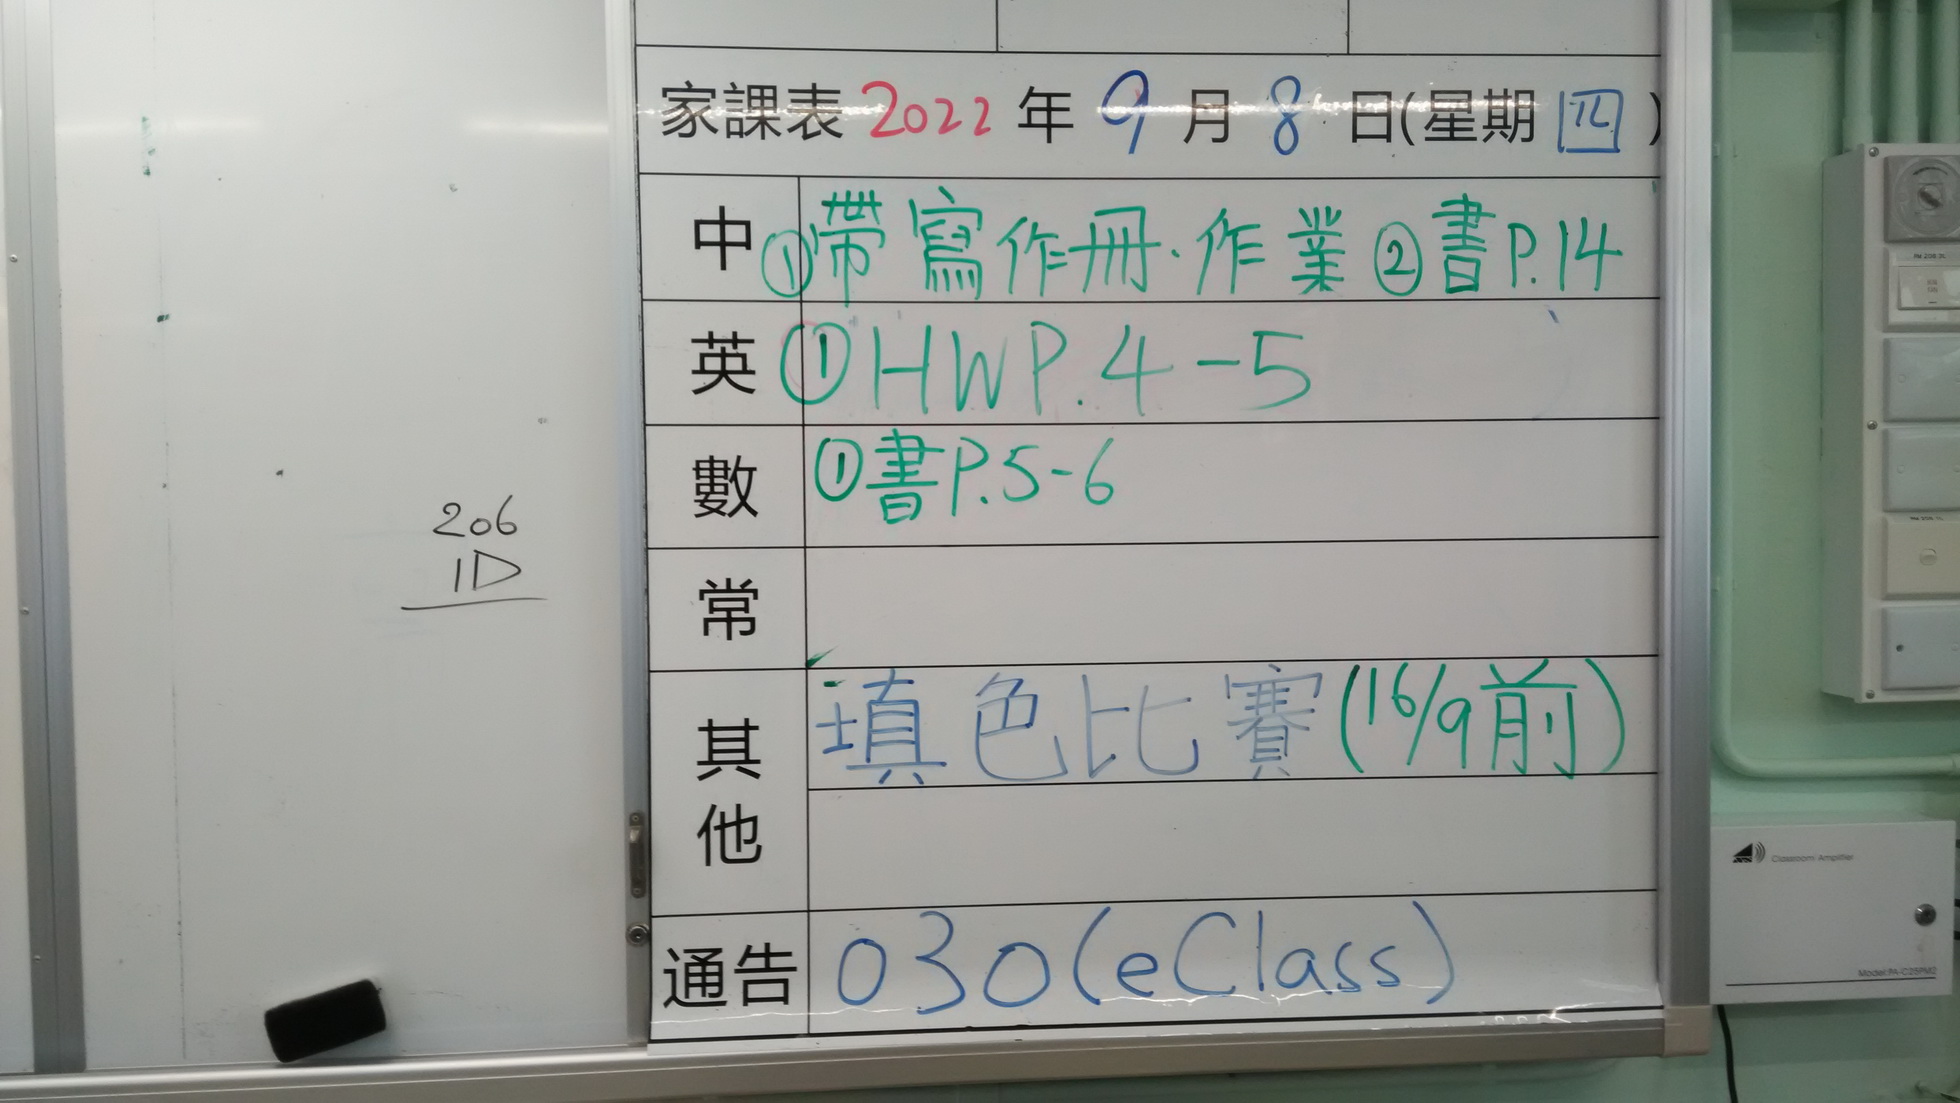 家課表 2022 年 9 月 8 日(星期 四 )
中 ①帶寫作冊.作業 ②書P.14
英 ①HWP.4-5
數 ①書P.5-6
常
其他 填色比賽(16/9前)
通告 030(eClass)
206
1D
Classroom Amplifier
Model:PA-C25PM2